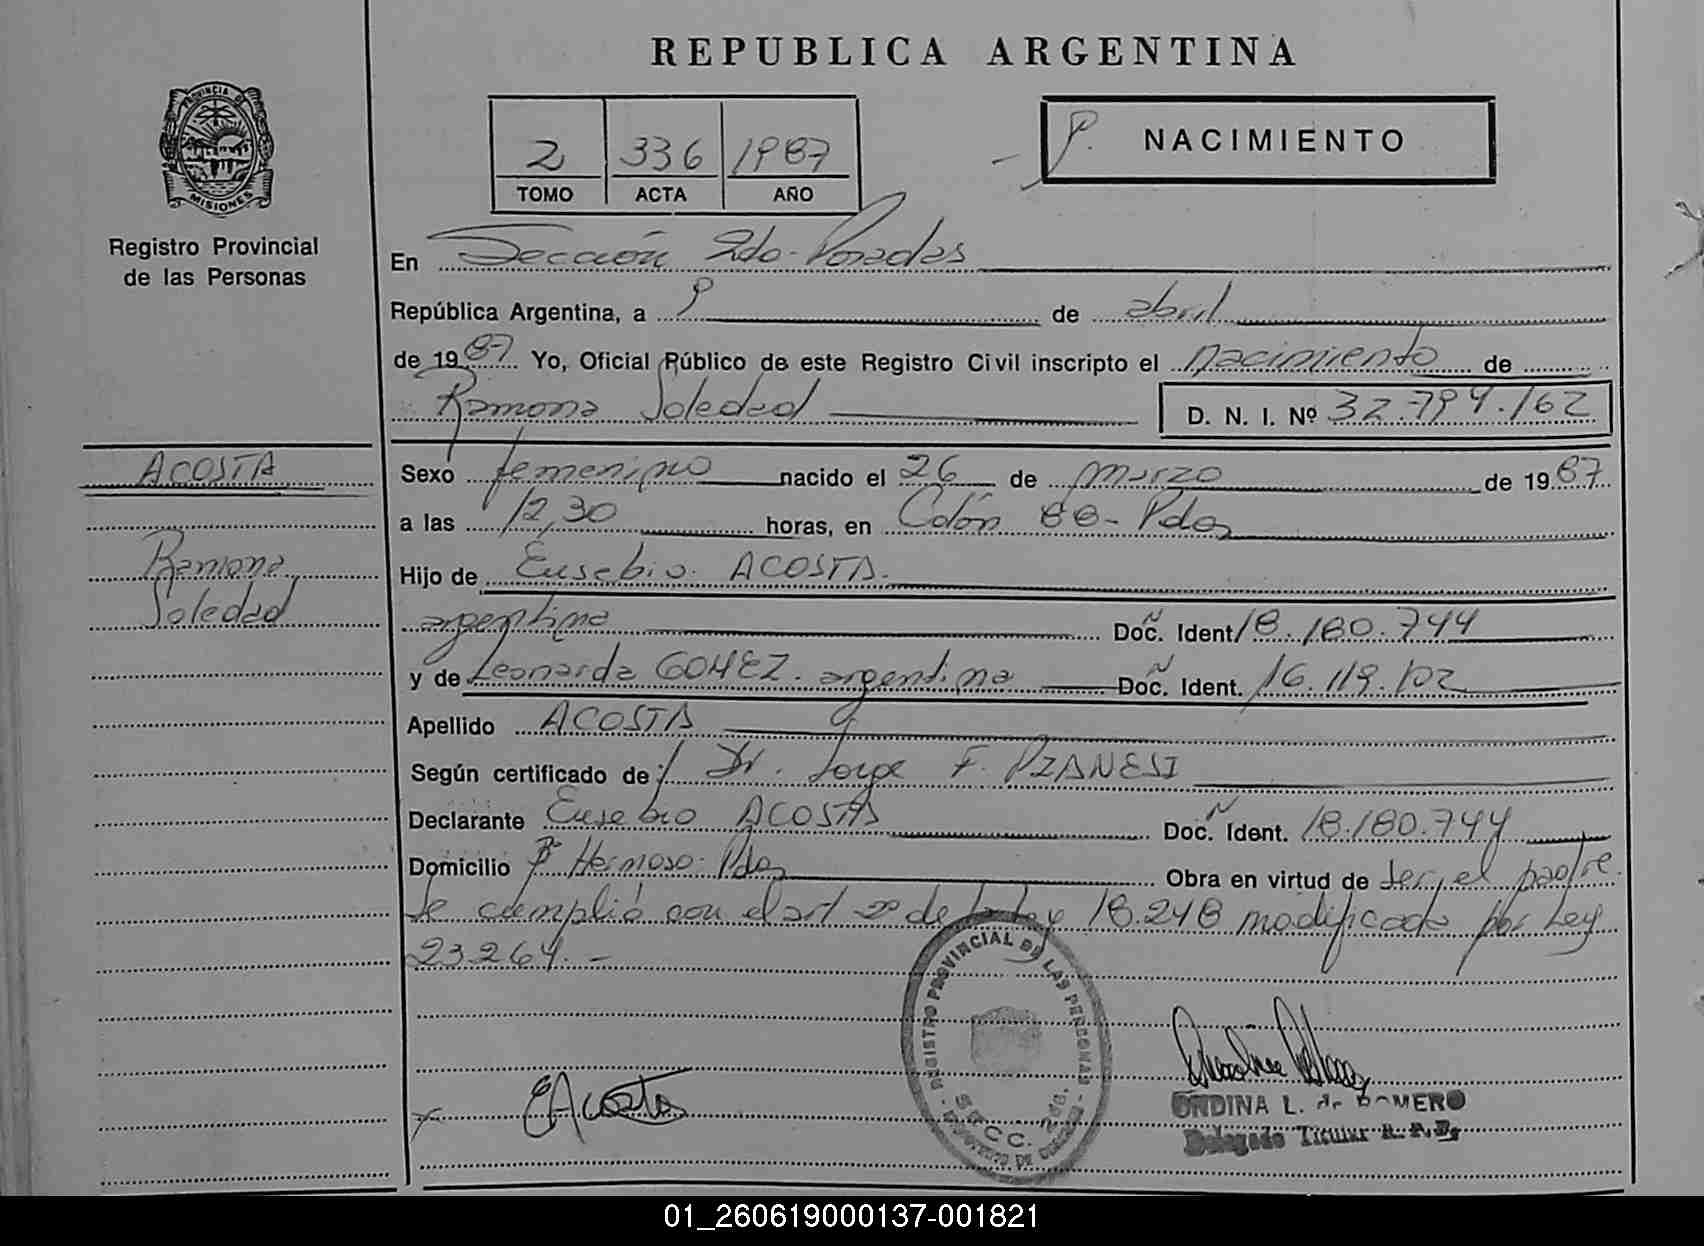 REPUBLICA ARGENTINA
PROVINCIA DE
MISIONES
Registro Provincial
de las Personas
2 336 1987
TOMO ACTA AÑO
NACIMIENTO
En Sección 2da. Posadas
República Argentina, a 9 de abril
de 1987 Yo, Oficial Público de este Registro Civil inscripto el nacimiento de
Ramona Soledad D. N. I. Nº 32.794.162
ACOSTA
Ramona
Soledad
Sexo femenino nacido el 26 de marzo de 1987
a las 12,30 horas, en Colón - Pdas
Hijo de Eusebio ACOSTA.
argentina Doc. Ident. 18.180.744
y de Leonarda GOMEZ. argentina Doc. Ident. 16.119.102
Apellido ACOSTA
Según certificado de: Dr. Jorge F. PIANESI
Declarante Eusebio ACOSTA Doc. Ident. 18.180.744
Domicilio Bº Hermoso. Pdas Obra en virtud de ser el padre.
Se cumplió con el art 2º de la Ley 18.248 modificado por Ley
23264.-
REGISTRO PROVINCIAL DE LAS PERSONAS
SECC. 2da.
EAcosta
ONDINA L. de ROMERO
Delegado Titular R. P. P.
01_260619000137-001821